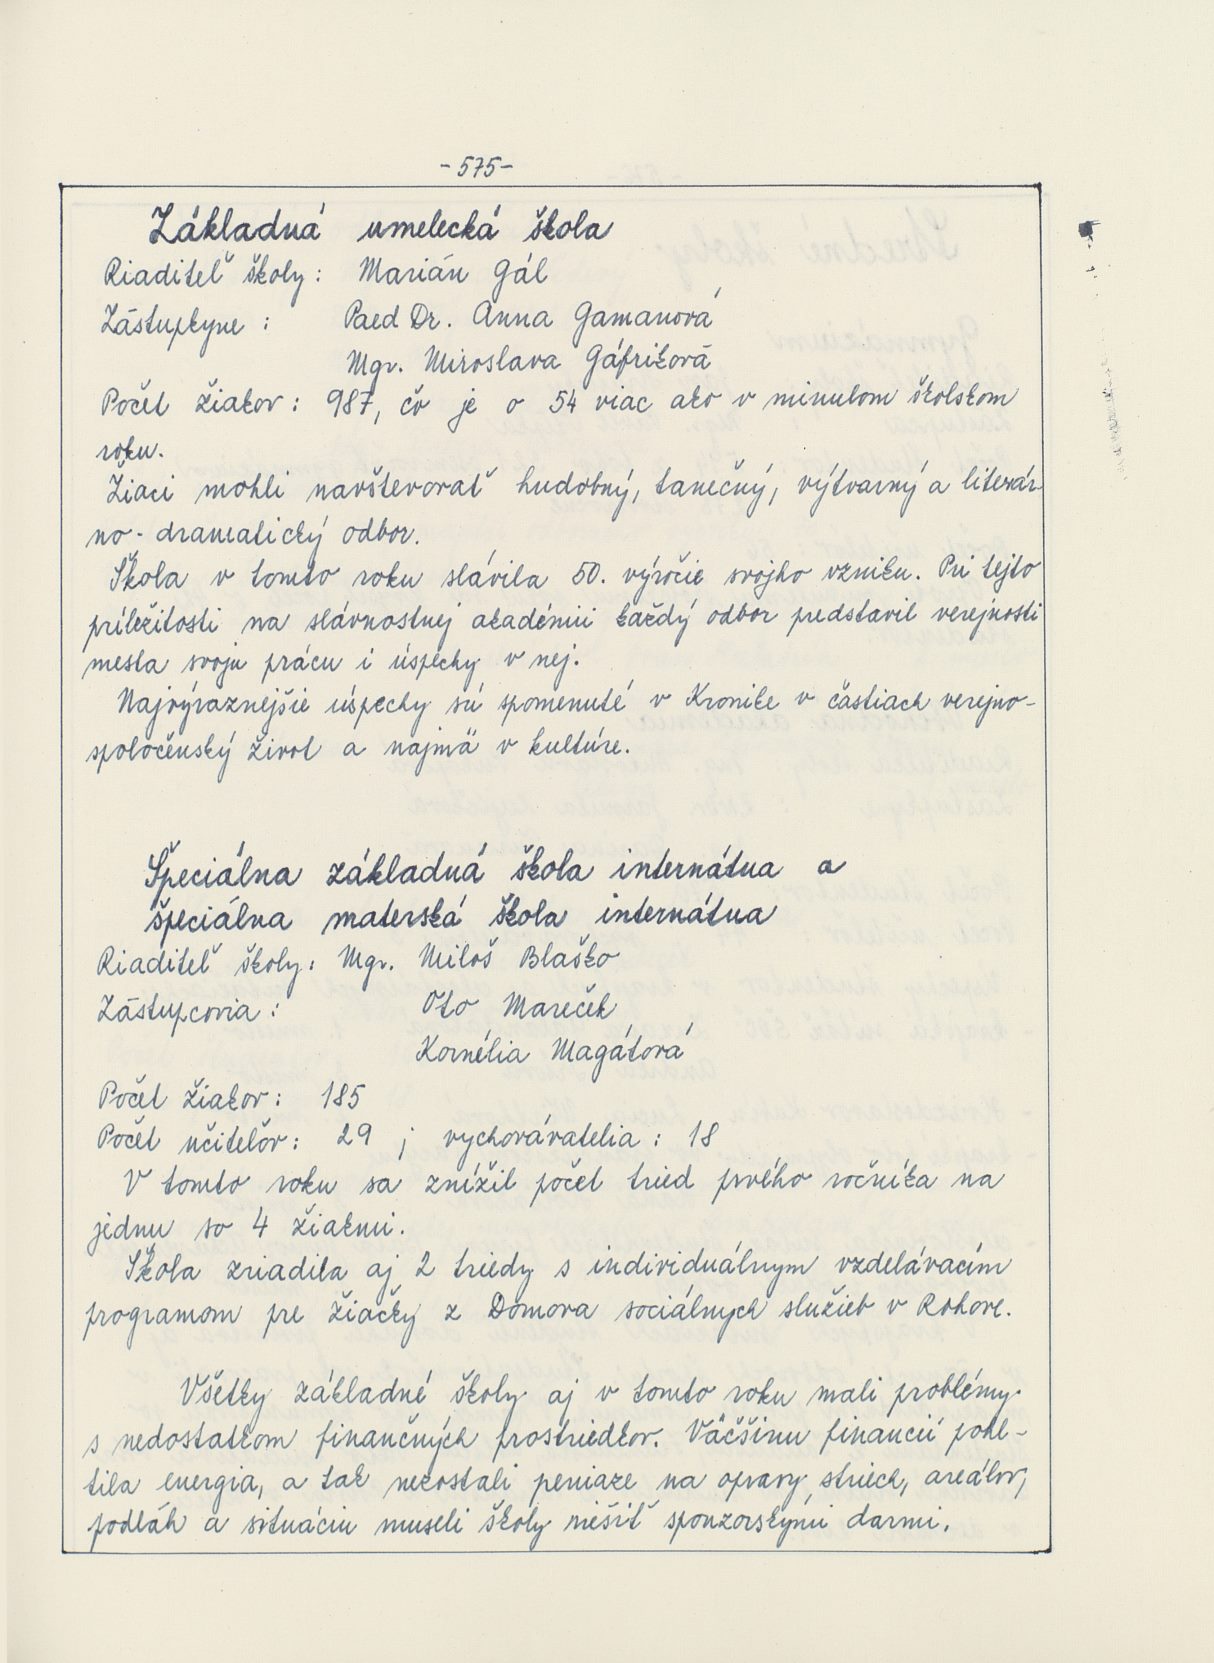 - 575 -
Základná umelecká škola
Riaditeľ školy: Marián Gál
Zástupkyne : Paed Dr. Anna Gamanová
Mgr. Miroslava Gáfriková
Počet žiakov: 987, čo je o 54 viac ako v minulom školskom
roku.
Žiaci mohli navštevovať hudobný, tanečný, výtvarný a literár-
no-dramatický odbor.
Škola v tomto roku slávila 50. výročie svojho vzniku. Pri tejto
príležitosti na slávnostnej akadémii každý odbor predstavil verejnosti
mesta svoju prácu i úspechy v nej.
Najvýraznejšie úspechy sú spomenuté v Kronike v častiach verejno-
spoločenský život a najmä v kultúre.
Špeciálna základná škola internátna a
špeciálna materská škola internátna
Riaditeľ školy: Mgr. Miloš Blaško
Zástupcovia : Oto Mareček
Kornélia Magátová
Počet žiakov: 185
Počet učiteľov: 29 ; vychovávatelia : 18
V tomto roku sa znížil počet tried prvého ročníka na
jednu so 4 žiakmi.
Škola zriadila aj 2 triedy s individuálnym vzdelávacím
programom pre žiačky z Domova sociálnych služieb v Rohove.
Všetky základné školy aj v tomto roku mali problémy
s nedostatkom finančných prostriedkov. Väčšinu financií pohl-
tila energia, a tak nezostali peniaze na opravy striech, areálov,
podláh a situáciu museli školy riešiť sponzorskými darmi.